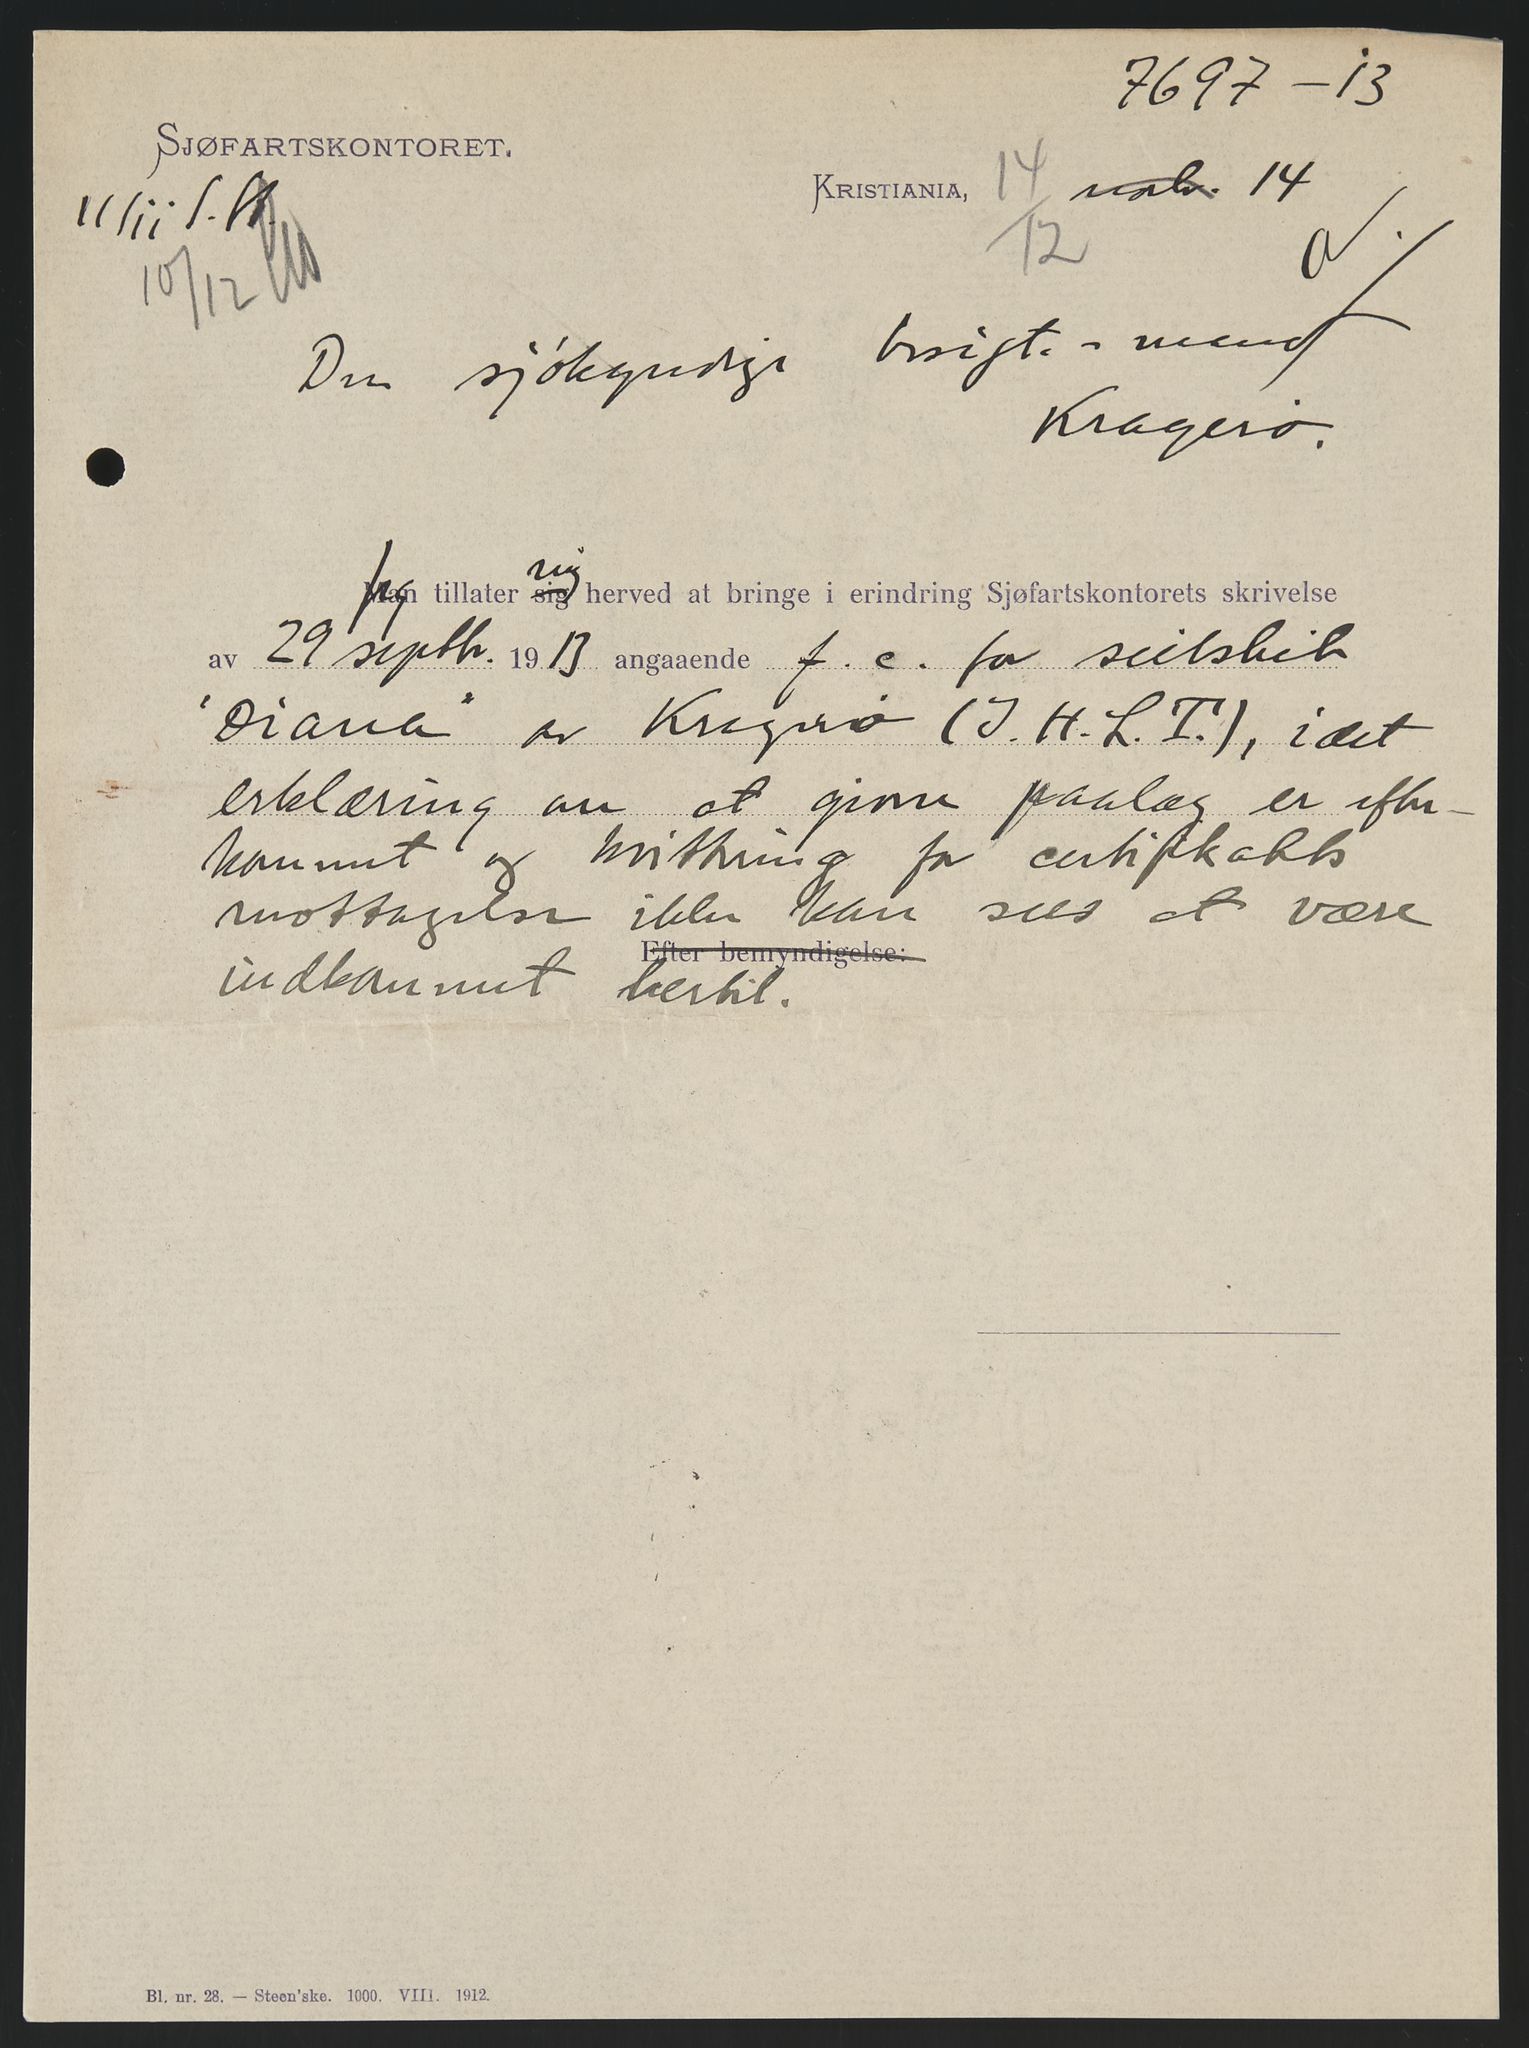 7697 - 13
SJØFARTSKONTORET.
KRISTIANIA, 14/12 novbr. 14
11/11
10/12
Den sjökyndige besigt. - mand
Kragerö.
Jeg mig
Man tillater sig herved at bringe i erindring Sjøfartskontorets skrivelse
av 29 septbr. 1913 angaaende f. c. for seilskib
"Diana" av Kragerö (J. H. L. T.), idet
erklæring om at givne paalæg er efter-
kommet og kvittering for certifikatets
mottagelse ikke kan sees at være
Efter bemyndigelse:
indkommet hertil.
Bl. nr. 28. — Steen'ske. 1000. VIII. 1912.